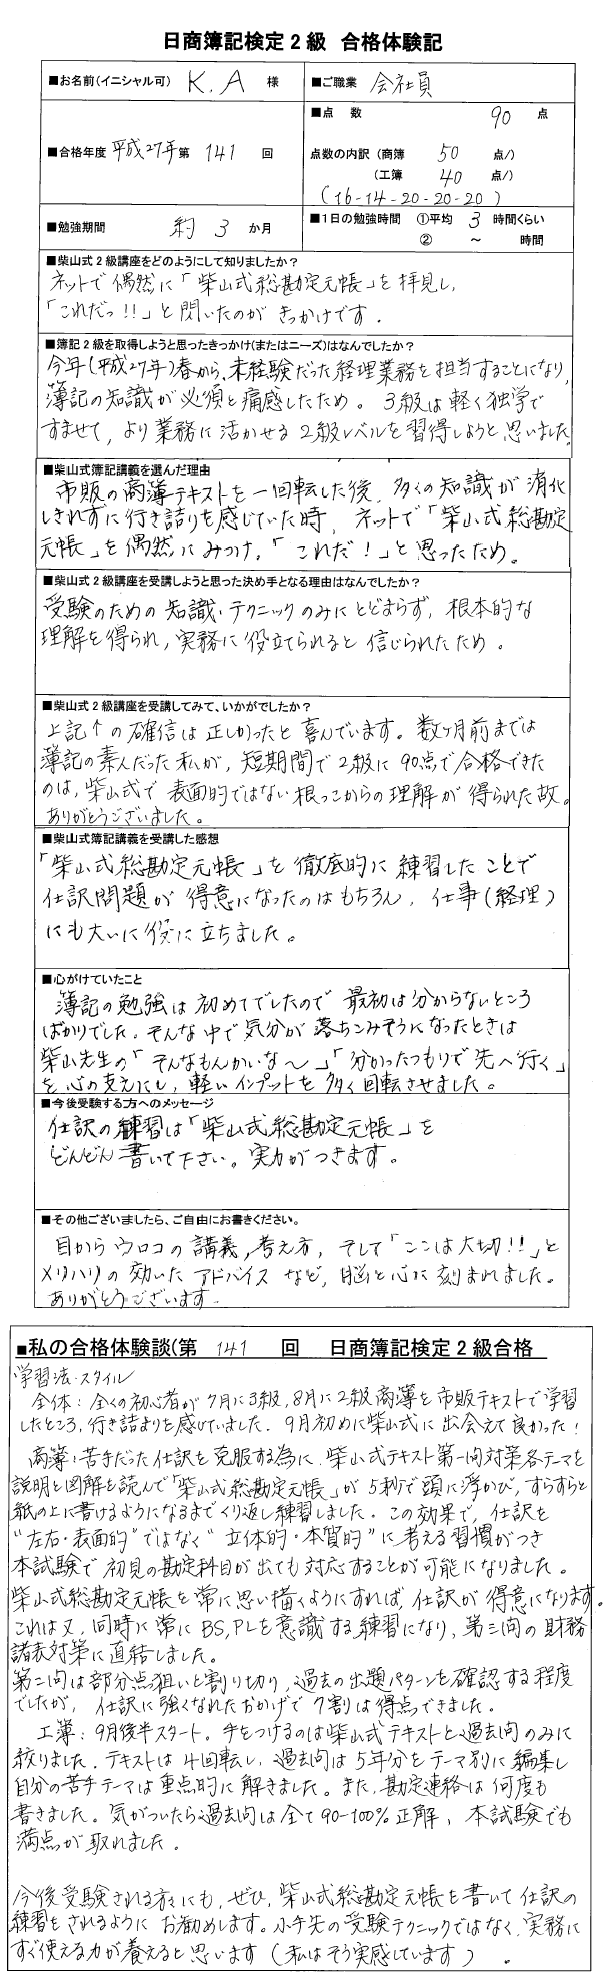 日商簿記検定２級 合格体験記
■お名前(イニシャル可) K.A 様
■ご職業 会社員
■合格年度 平成27年 第 141 回
■点 数 90 点
点数の内訳（商簿 50 点/）
（工簿 40 点/）
(16-14-20-20-20)
■勉強期間 約 3 か月
■１日の勉強時間 ①平均 3 時間くらい
② ～ 時間
■柴山式２級講座をどのようにして知りましたか？
ネットで偶然に「柴山式総勘定元帳」を拝見し、
「これだっ!!」と閃いたのがきっかけです。
■簿記２級を取得しようと思ったきっかけ(またはニーズ)はなんでしたか？
今年(平成27年)春から、未経験だった経理業務を担当することになり、
簿記の知識が必須と痛感したため。３級は軽く独学で
すませて、より業務に活かせる２級レベルを習得しようと思いました。
■柴山式簿記講義を選んだ理由
市販の商簿テキストを一回転した後、多くの知識が消化
しきれずに行き詰りを感じていた時、ネットで「柴山式総勘定
元帳」を偶然にみつけ、「これだ！」と思ったため。
■柴山式２級講座を受講しようと思った決め手となる理由はなんでしたか？
受験のための知識・テクニックのみにとどまらず、根本的な
理解を得られ、実務に役立てられると信じられたため。
■柴山式２級講座を受講してみて、いかがでしたか？
上記↑の確信は正しかったと喜んでいます。数ヶ月前までは
簿記の素人だった私が、短期間で２級に90点で合格できた
のは、柴山式で表面的ではない根っこからの理解が得られた故。
ありがとうございました。
■柴山式簿記講義を受講した感想
「柴山式総勘定元帳」を徹底的に練習したことで
仕訳問題が得意になったのはもちろん、仕事（経理）
にも大いに役に立ちました。
■心がけていたこと
簿記の勉強は初めてでしたので最初は分からないところ
ばかりでした。そんな中で気分が落ちこみそうになったときは
柴山先生の「そんなもんかいな～」「分かったつもりで先へ行く」
を心の支えにし、軽いインプットを多く回転させました。
■今後受験する方へのメッセージ
仕訳の練習は「柴山式総勘定元帳」を
どんどん書いて下さい。実力がつきます。
■その他ございましたら、ご自由にお書きください。
目からウロコの講義、考え方、そして「ここは大切!!」と
メリハリの効いたアドバイスなど、脳と心に刻まれました。
ありがとうございます。
■私の合格体験談(第 141 回 日商簿記検定２級合格
学習法・スタイル
全体：全くの初心者が７月に３級、８月に２級商簿を市販テキストで学習
したところ、行き詰まりを感じていました。９月初めに柴山式に出会えて良かった！
商簿：苦手だった仕訳を克服する為に、柴山式テキスト第一問対策各テーマを
説明と図解を読んで「柴山式総勘定元帳」が５秒で頭に浮かび、すらすらと
紙の上に書けるようになるまでくり返し練習しました。この効果で、仕訳を
“左右・表面的”ではなく“立体的・本質的”に考える習慣がつき
本試験で初見の勘定科目が出ても対応することが可能になりました。
柴山式総勘定元帳を常に思い描くようにすれば、仕訳が得意になります。
これは又、同時に常にBS,PLを意識する練習になり、第三問の財務
諸表対策に直結しました。
第二問は部分点狙いと割り切り、過去の出題パターンを確認する程度
でしたが、仕訳に強くなれたおかげで７割は得点できました。
工簿：９月後半スタート。手をつけるのは柴山式テキストと過去問のみに
絞りました。テキストは４回転し、過去問は５年分をテーマ別に編集し
自分の苦手テーマは重点的に解きました。また、勘定連絡は何度も
書きました。気がついたら過去問は全て90-100%正解、本試験でも
満点が取れました。
今後受験される方々にも、ぜひ、柴山式総勘定元帳を書いて仕訳の
練習をされるようにお勧めします。小手先の受験テクニックではなく、実務に
すぐ使える力が養えると思います（私はそう実感しています）。